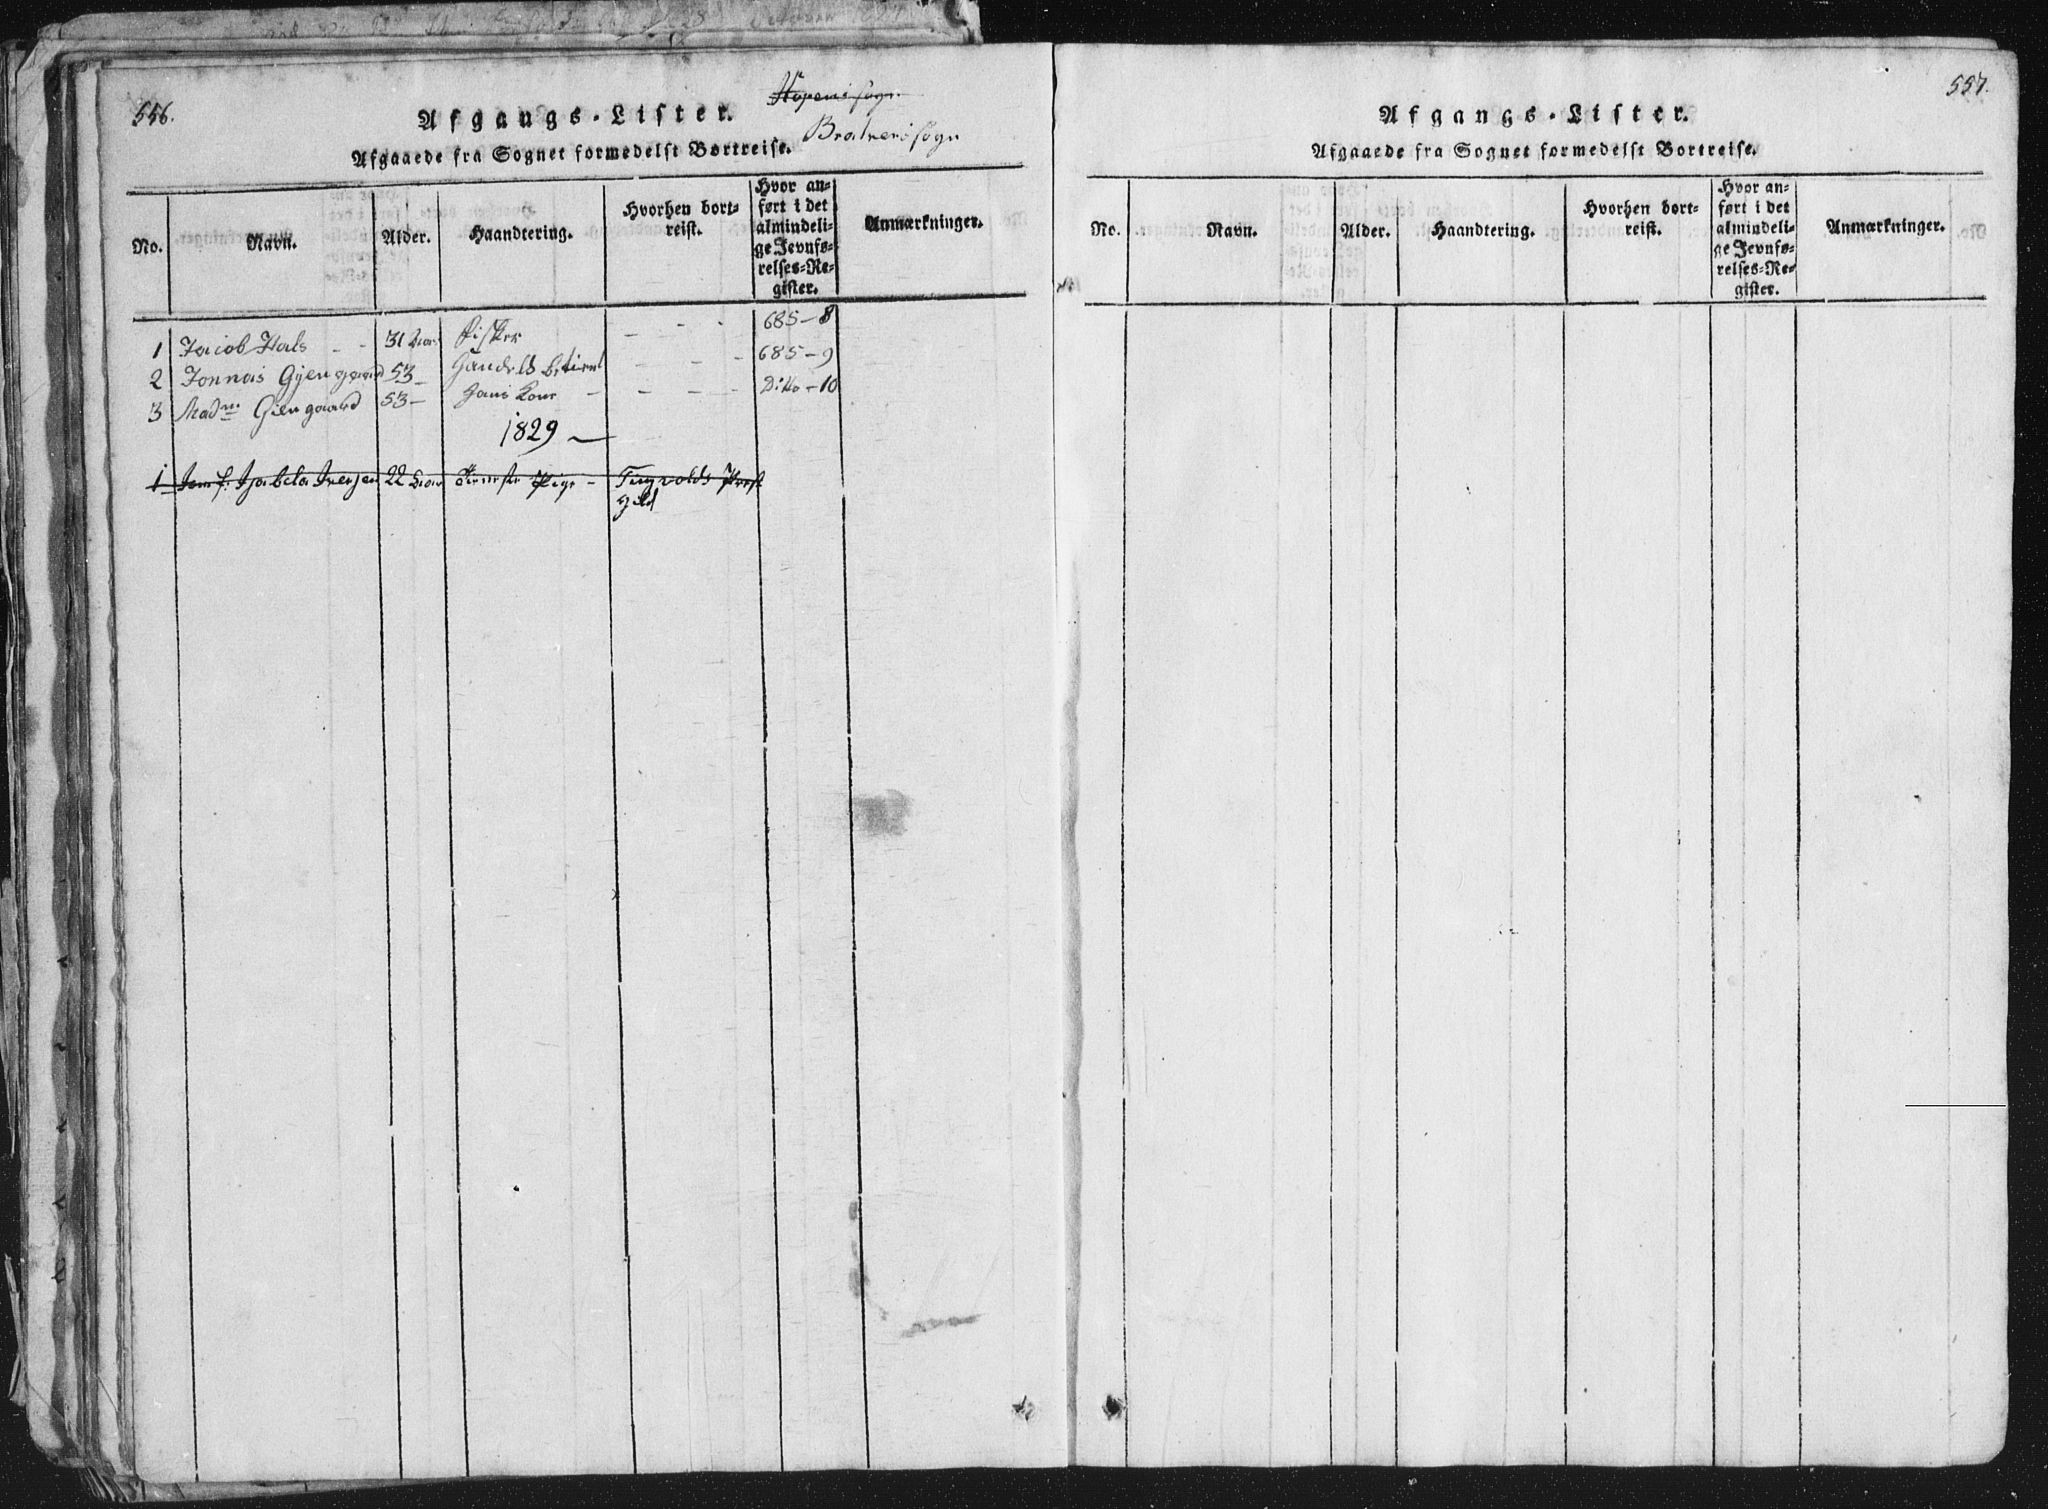 556.
Afgangs-Lister.
Hopens sogn
Bratvers sogn
Afgaaede fra Sognet formedelst Bortreise.
No. Navn. Alder. Haandtering. Hvorhen bort-
reist. Hvor an-
ført i det
almindeli-
ge Jevnfø-
relses-Re-
gister. Anmærkninger.
1 Jacob Hals - - 31 Aar Fisker - - - 685-8
2 Jonnas Gyengaard 53- Handels betient - - 685-9
3 Madm Giengaard 53- Hans Kone - - - - Ditto-10
1829 -
1 Jomf: Isabela Iversen 22 Aar Tieneste Pige - Tingvolds Prest
gield
557.
Afgangs-Lister.
Afgaaede fra Sognet formedelst Bortreise.
No. Navn. Alder. Haandtering. Hvorhen bort-
reist. Hvor an-
ført i det
almindeli-
ge Jevnfø-
relses-Re-
gister. Anmærkninger.